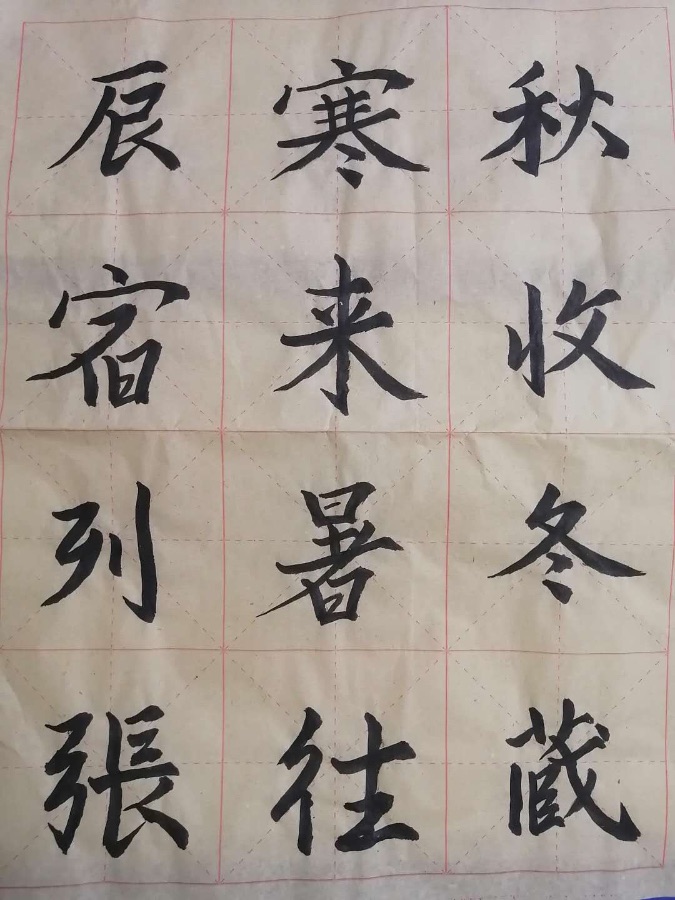 辰宿列張
寒来暑往
秋收冬藏